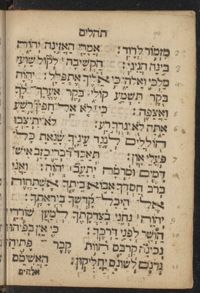 תהלים
מזמור לדוד: אמרי האזינה יהוה
בינה הגיגי: הקשיבה לקול שועי
מלכי ואלהי כי אליך אתפלל: יהוה
בקר תשמע קולי בקר אערך לך
ואצפה: כי לא אל חפץ רשע
אתה לא יגרך רע: לא יתיצבו
הוללים לנגד עיניך שנאת כל
פעלי און: תאבד דברי כזב איש
דמים ומרמה יתעב יהוה: ואני
ברב חסדך אבוא ביתך אשתחוה
אל היכל קדשך ביראתך:
יהוה נחני בצדקתך למען שוררי
הושר לפני דרכך: כי אין בפיהו
נכונה קרבם הוות קבר פתוח
גרונם לשונם יחליקון: האשימם
אלהים